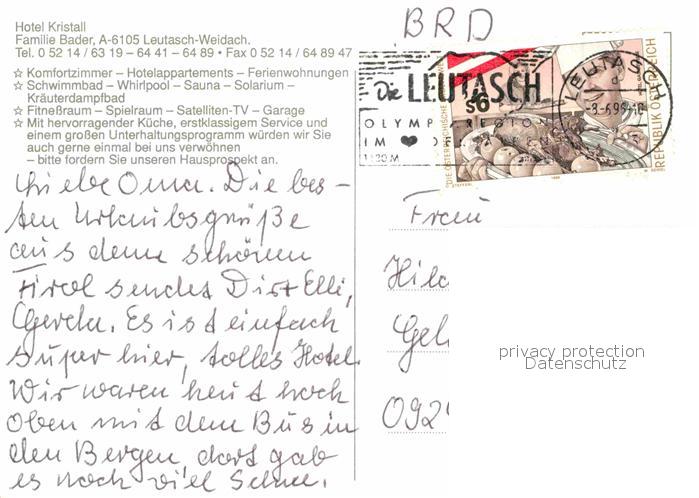 Hotel Kristall
Familie Bader, A-6105 Leutasch-Weidach.
Tel. 0 52 14 / 63 19 – 64 41 – 64 89 • Fax 0 52 14 / 64 89 47
☆ Komfortzimmer – Hotelappartements – Ferienwohnungen
☆ Schwimmbad – Whirlpool – Sauna – Solarium –
Kräuterdampfbad
☆ Fitneßraum – Spielraum – Satelliten-TV – Garage
☆ Mit hervorragender Küche, erstklassigem Service und
einem großen Unterhaltungsprogramm würden wir Sie
auch gerne einmal bei uns verwöhnen
– bitte fordern Sie unseren Hausprospekt an.
Liebe Oma. Die bes-
ten Urlaubsgrüße
aus dem schönen
Tirol sendet Dir Elli,
Gerda. Es ist einfach
super hier, tolles Hotel.
Wir waren heut hoch
oben mit dem Bus in
den Bergen, dort gab
es noch viel Schnee.
BRD
Die LEUTASCH
OLYMPIAREGION
IM ♥ DE
S6
LEUTASCH
REPUBLIK ÖSTERREICH
DIE ÖSTERREICHISCHE
Frau
Hild
Gel
092
privacy protection
Datenschutz